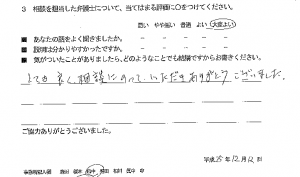 3 相談を担当した弁護士について、当てはまる評価に○をつけてください。
悪い やや悪い 普通 よい 大変よい
■ あなたの話をよく聞きましたか。
■ 説明は分かりやすかったですか。
■ 気がついたことがありましたら、どのようなことでも結構ですからお書きください。
とても良く相談にのっていただきありがとうございました。
ご協力ありがとうございました。
平成25年12月12日